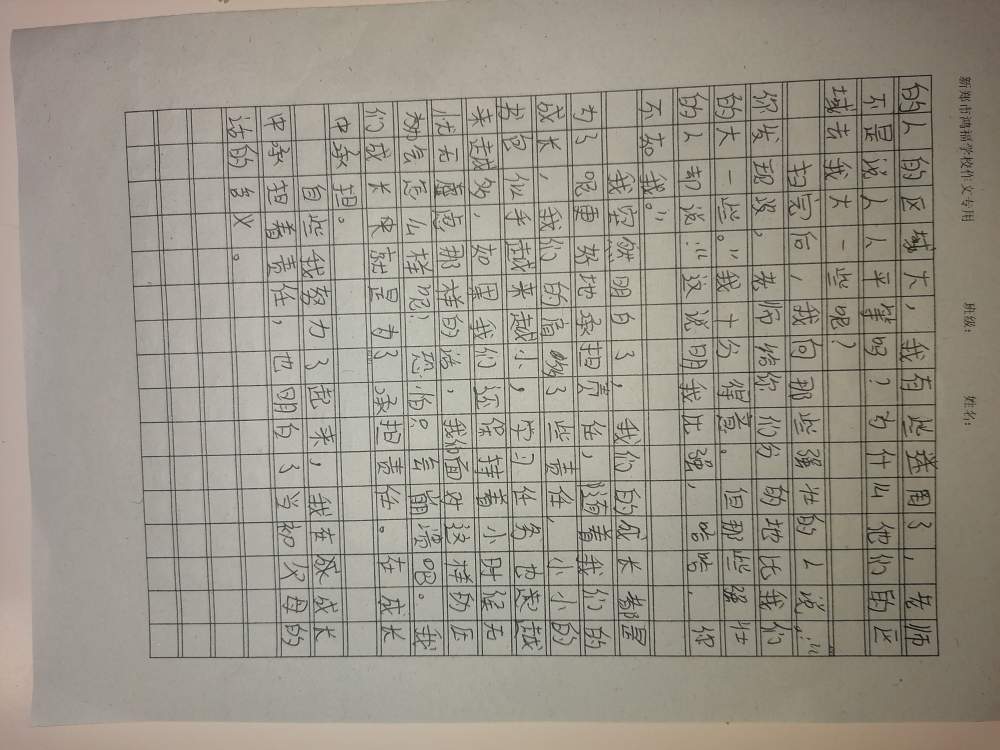 新郑市鸿福学校作文专用 班级： 姓名：
的人的区域大，我有些迷困了，老师
不是说人人平等吗？为什么他们的区
域去我大一些呢？
扫完后，我向那些强壮的人说：“
你发现没，老师给你们分的地比我们
的大一些。”我十分得意。但那些强壮
的人却说：“这说明我比强，哈哈，你
不如我。”
我突然明白了，我们的成长都是
为了呢更好地承担责任，随着我们的
成长，我们的肩膀了些责任，小小的
书包似乎越来越小，学习任务也越
来越多，如果我们还保持着小时候无
忧无虑那样的话，我们面对这样的压
力会怎么样呢？恐怕只会崩溃吧。我
们成长来就是为了承担责任。在成长
中承担。
自些我努力了起来，我在成长
中承担着责任，也明白了当初父母的
话的含义。